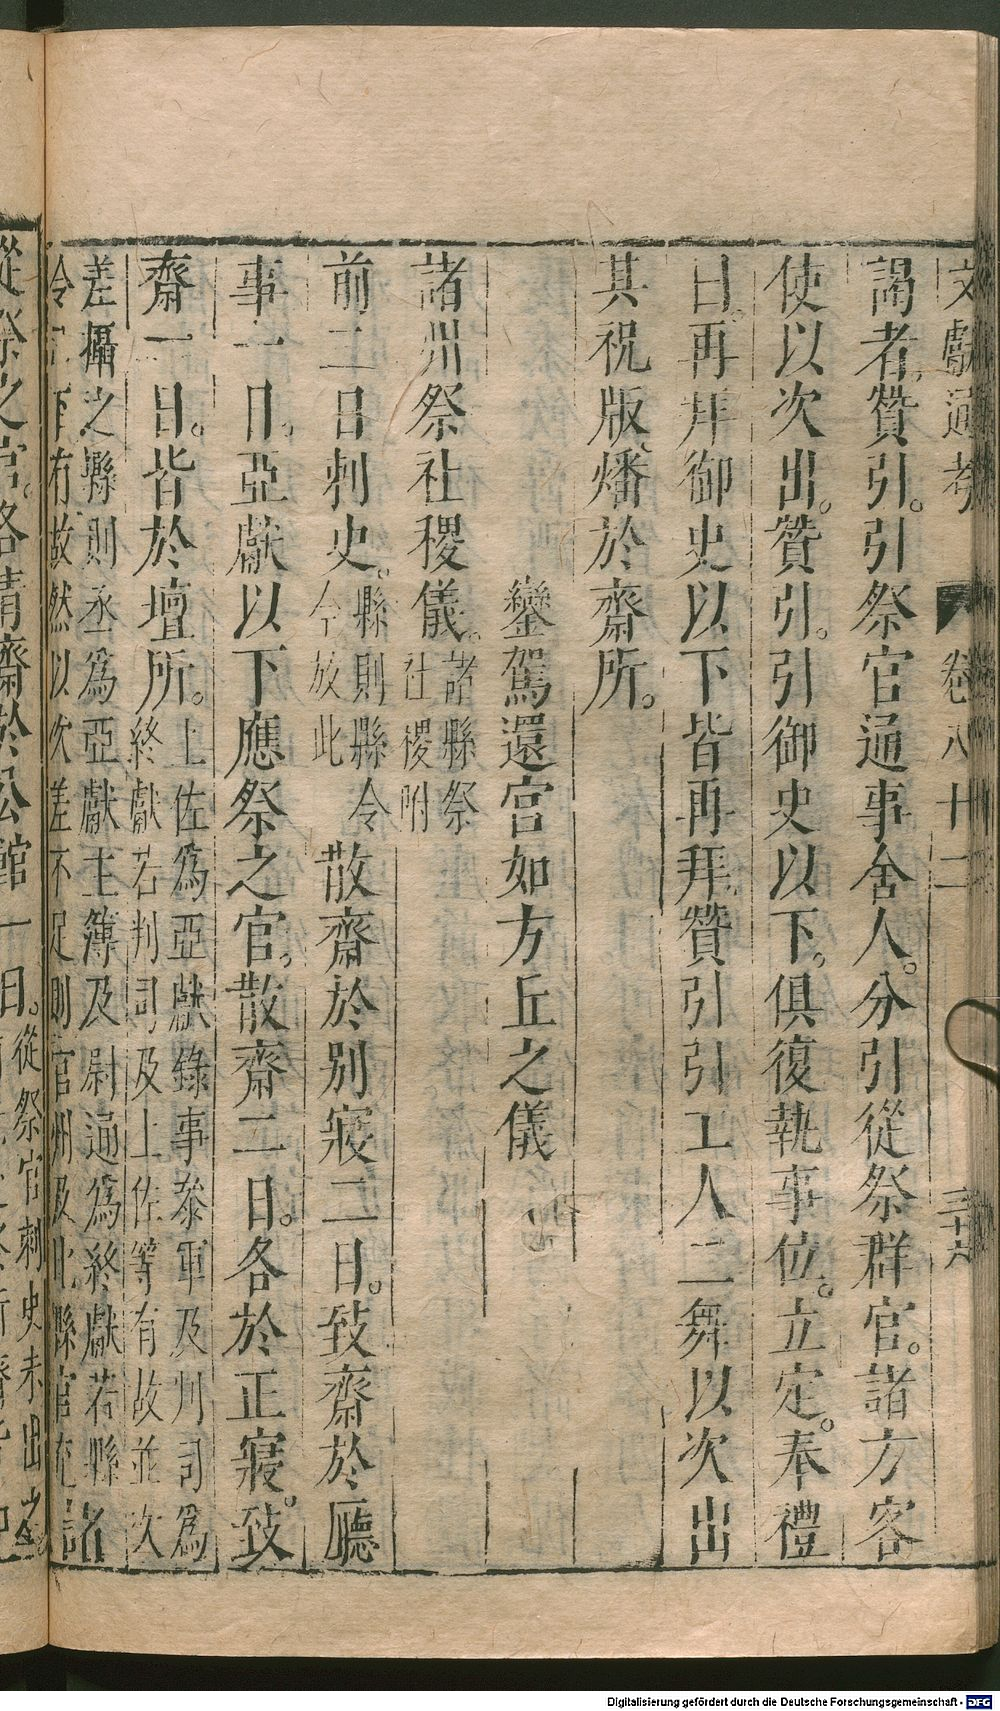 文獻通考 卷八十二 三十六
謁者贊引。引祭官通事舍人。分引從祭群官。諸方客
使以次出。贊引。引御史以下。俱復執事位。立定。奉禮
曰。再拜御史以下皆再拜贊引引工人二舞以次出
其祝版燔於齋所。
鑾駕還宮如方丘之儀
諸州祭社稷儀。諸縣祭
社稷附
前二日刺史。縣則縣令
今放此 散齋於別寢二日。致齋於廳
事一日。亞獻以下應祭之官。散齋二日。各於正寢。致
齋一日。皆於壇所。上佐為亞獻錄事參軍及判司為
終獻若判司及上佐等有故並次
差攝之縣則丞為亞獻主簿及尉通為終獻若縣
令已下有故然以次差不足則官州及比縣官充諸
從祭之官。各清齋於公館一日。從祭官刺史未出
Digitalisierung gefördert durch die Deutsche Forschungsgemeinschaft - DFG